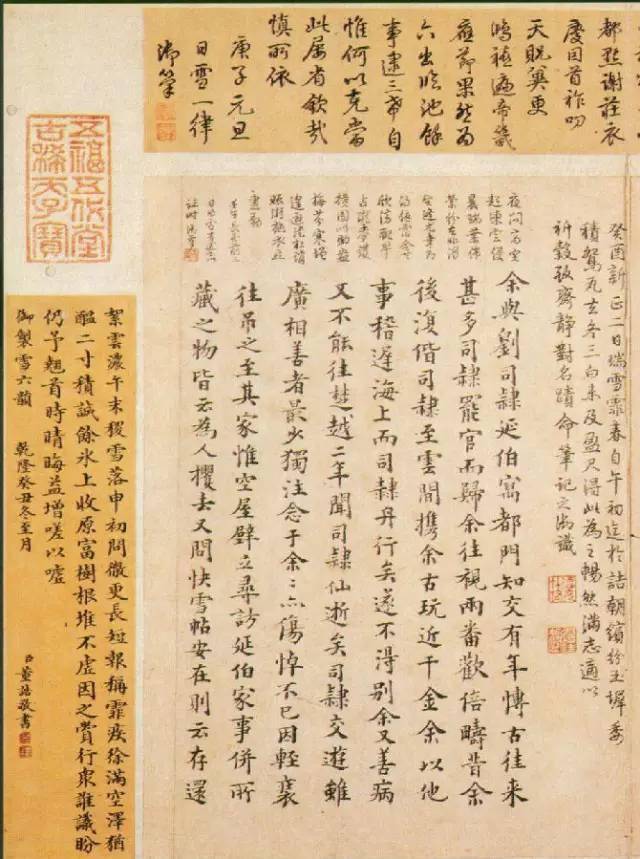 都點謝莊衣
慶因首祚叨
天貺冀更
鴻禧遍帝畿
應節果然為
六出臨池餘
事逮三希自
惟何以克當
此屢省欽哉
慎所依
庚子元旦
日雪一律
御筆
癸酉新正一日瑞雪霏春自午初迄於詰朝繽紛玉墀委
積鴛瓦去冬三白未及盈尺得此為之暢然滿志適以
祈穀致齋靜對名蹟命筆記之御識
余與劉司隷延伯寓都門知交有年博古往來
甚多司隷罷官而歸余往視兩番歡倍疇昔余
後復偕司隷至雲間攜余古玩近千金余以他
事稽遲海上而司隷舟行矣遂不得別余又善病
又不能往楚越二年聞司隷仙逝矣司隷交遊雖
廣相善者最少獨注念于余余亦傷悼不已因輕裝
往吊之至其家惟空屋壁立尋訪延伯家事併所
藏之物皆云為人攫去又問快雪帖安在則云存還
五福五代堂
古稀天子寶
絮雲濃午末稷雪落申初問微更長短報稱霏疾徐滿空澤猶
醞二寸積誠餘氷上收原富樹根堆不虛因之賞行衆誰議盼
仍予翹首時晴晦益增嗟以噓
御製雪六韻 乾隆癸丑冬至月
臣董誥敬書